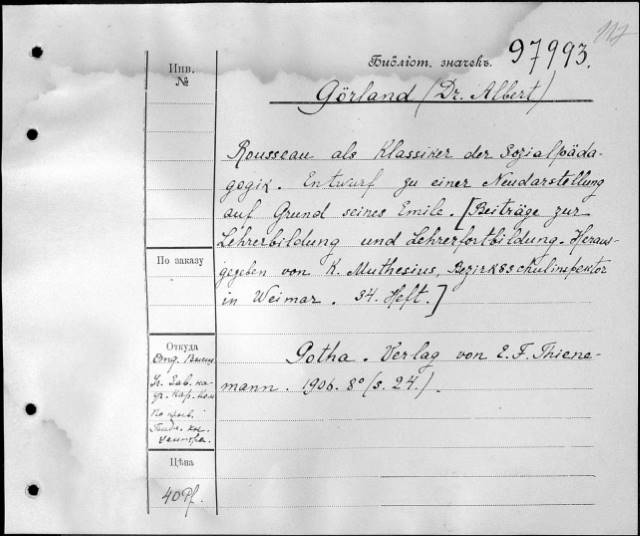 117
Библіот. значекъ. 97993.
Инв.
№
Görland (Dr. Albert)
Rousseau als Klassiker der Sozialpäda-
gogik. Entwurf zu einer Neudarstellung
auf Grund seines Emile. [Beiträge zur
Lehrerbildung und Lehrerfortbildung. Heraus-
gegeben von K. Muthesius, Bezirksschulinspektor
in Weimar. 34. Heft.]
По заказу
Gotha. Verlag von E. F. Thiene-
mann. 1906. 8° (s. 24.)
Откуда
Отд. Высш.
Уч. Зав. На-
Нар. Ком
По
Цѣна
40 Pf.